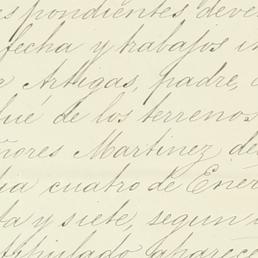 espondientes, deve
fecha y trabajos i
Artigas, padre,
fué de los terrenos
ñores Martinez de
ia cuatro de Ener
ta y siete, segun
stipulado aparece